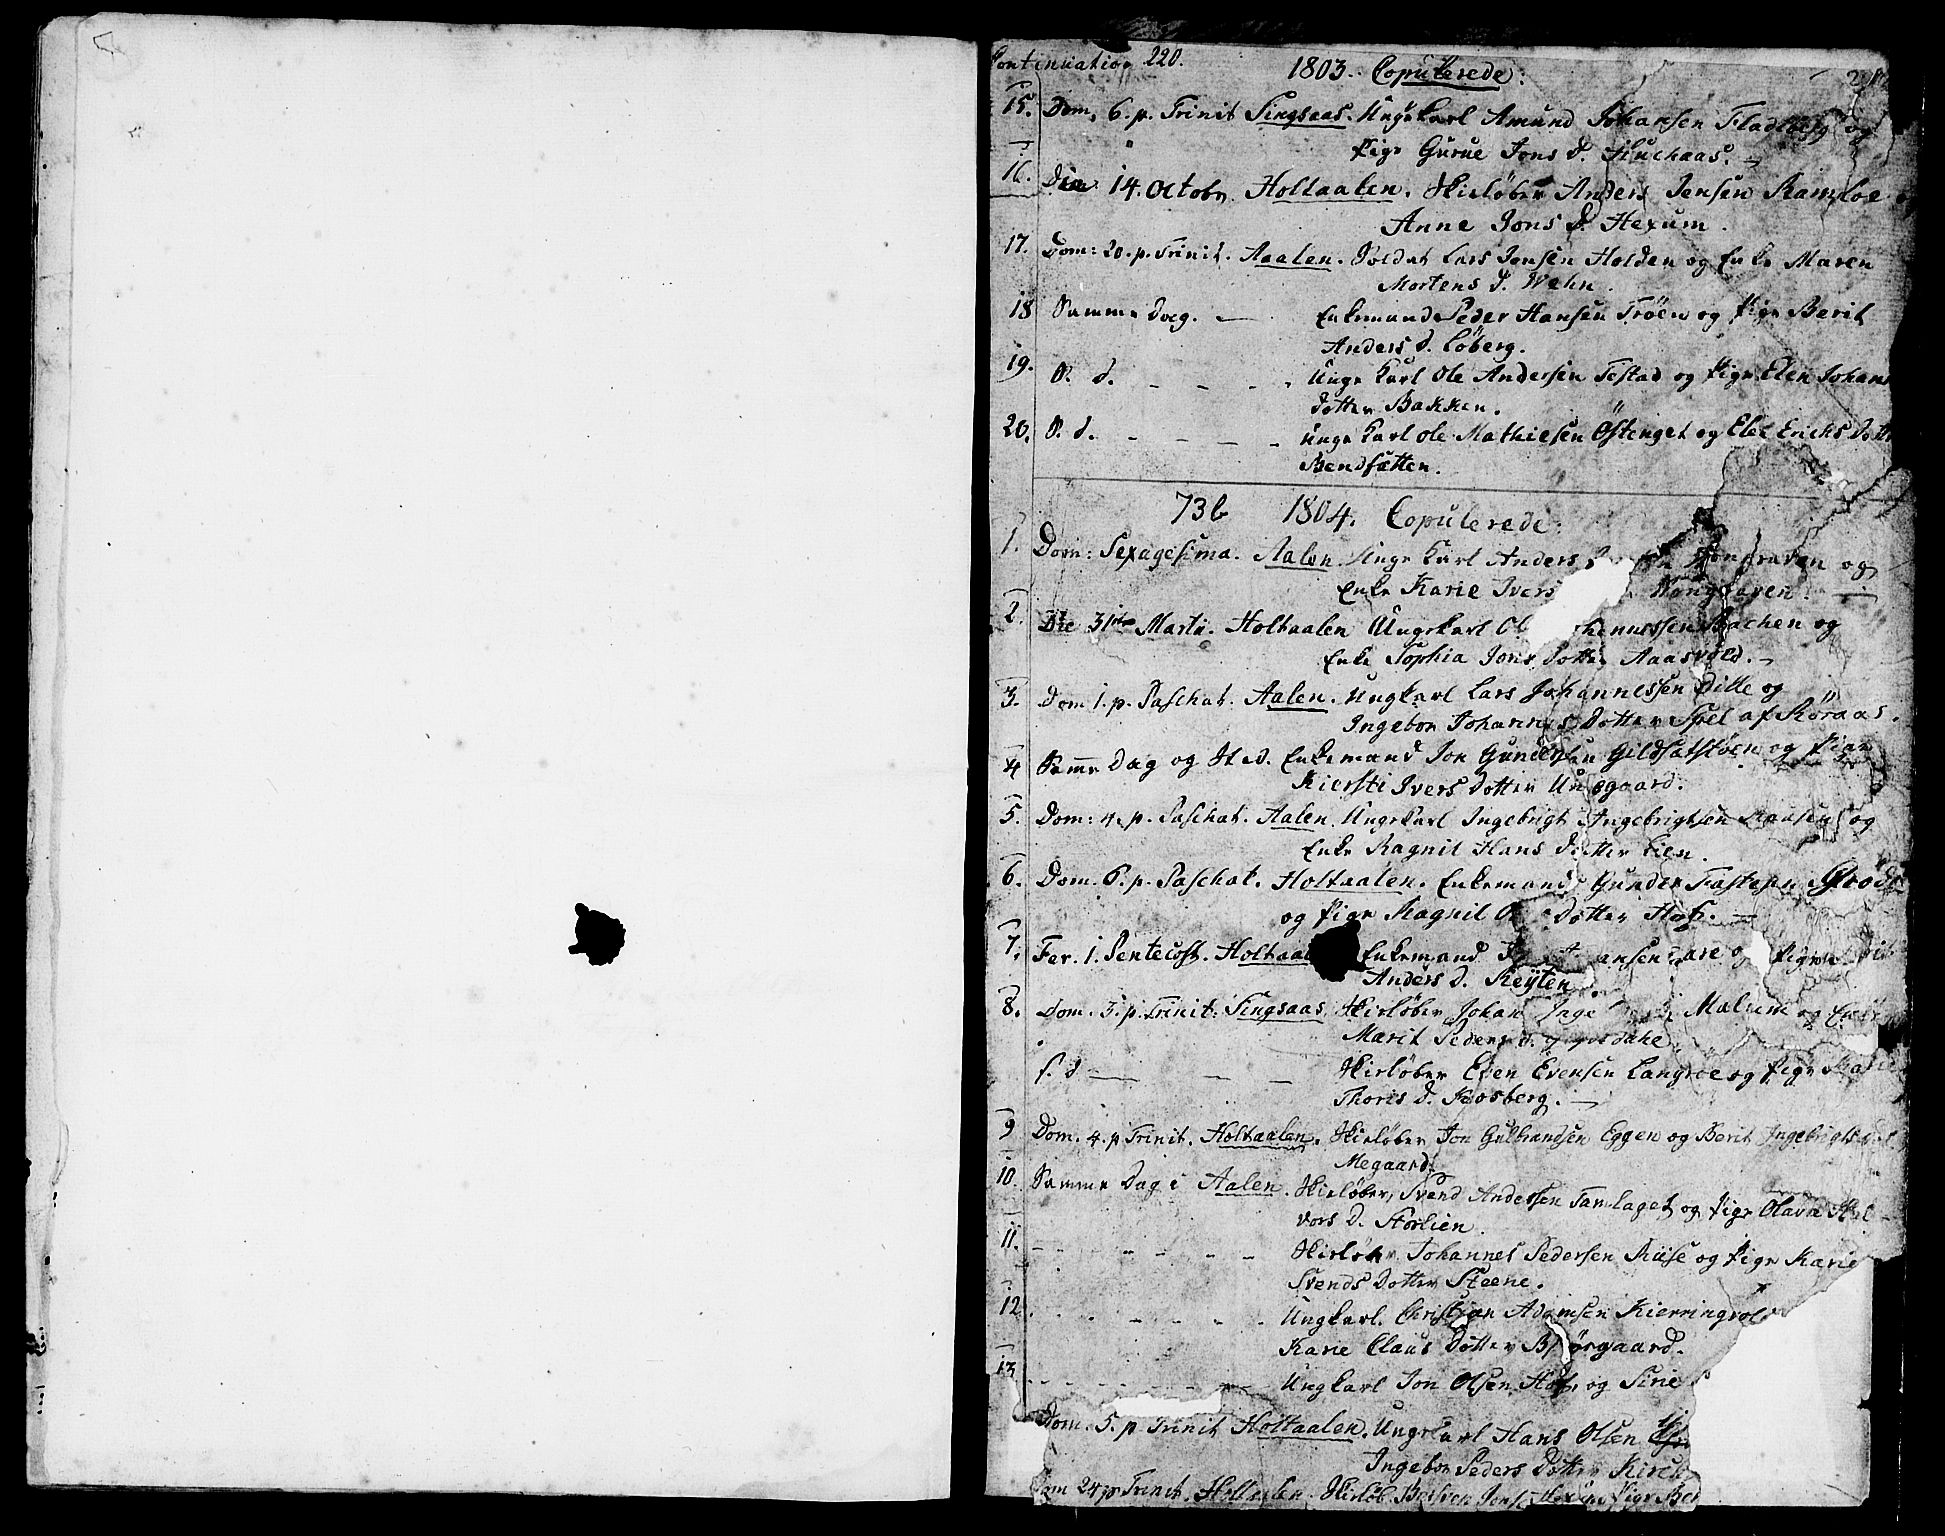 Continuation 220.
1803. Copulerede:
15. Dom. 6. p. Trinit Singsaas. Ungkarl Amund Johansen Fladberg og
Pige Gurue Jons d. Huchaas.
16. Die 14. Octobr. Holtaalen. Skiløber Anders Jensen Ramloe
Anne Jons d. Hexum.
17. Dom: 20. p. Trinit. Aaalen. Soldat Lars Jensen Holden og Enke Maren
Mortens d. Wehn.
18 Samme Dag. — Enkemand Peder Hansen Trøen og Pige Berit
Anders d. Løberg.
19. S. d. Unge Karl Ole Andersen Testad og Pige Elen Johans
dotter Bakken.
20. S. d. unge Karl Ole Mathiesen Østenget og Elee Erichs Dotter
Bendsætten.
73b 1804. Copulerede:
1. Dom: Sexagesima. Aalen. Unge Karl Anders og
Enke Karie Ivers
2. Die 31 Martii. Holtaalen Ungekarl Bachen og
Enke Sophia Jons Dotter Aaasvold.
3. Dom. 1. p. Paschat. Aalen. Ungkarl Lars Johannessen Dille og
Ingebor Johannes Dotter Spel af Røraas.
4 Samme Dag og Sted. Enkemand Jon Gundersen og Pige
Kiersti Ivers Dotter Unsgaard.
5. Dom: 4. p. Paschat. Aalen. Ungekarl Ingebrigt Ingebrigtsen og
Enke Ragnil Hans Dotter Lien.
6. Dom. 6. p. Paschat. Holtaalen. Enkemand Gunder Fastesen
og Pige Magnil Dotter Hof.
7. Fer. 1. Pentecost. Holtaal Enkemand ansen og Pige
Anders d. Reÿten.
8. Dom. 3. p. Trinit. Singsaas Skiløber Johan Inge Malum og Enke
Marit Peders d.
s. d — — — Skiløber Even Evensen Langroe og Pige Marie
Thoris d. Kosberg. —
9 Dom. 4. p Trinit. Holtaalen. Skiløber Jon Gulbrandsen Eggen og Berit Ingebrigts
Megaard.
10. Samme Dag i Aalen. Skiløber, Svend Andersen Tamlaget og Pige Olava
vors d. Storlien.
11. Skiløber Johannes Pedersen Muse og Pige Karie
Svends Dotter Steene.
12. Ungkarl. Christian Adamsen Kierringvol
Karie Claus Dotter Bjørgaard.
13 Ungkarl Jon Olsen Hof og Sirie
Dom. 5. p Trinit Holtaalen. Ungekarl Hans Olsen
Ingebor Peders Dotter
24 p Trinit. Holtaalen. Skiløb. Pige Ber